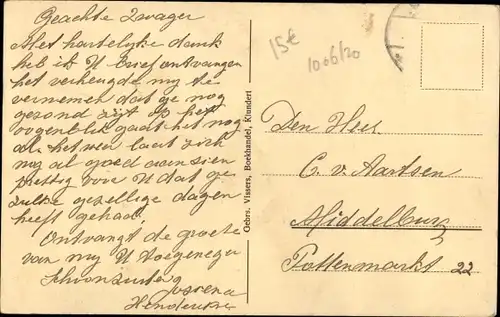 Geachte Zwager
Met hartelyke dank
heb ik U brief ontvangen
het verheugde my te
vernemen dat ge nog
gezond zyt op het
oogenblik gaat het nog
al. het weer laat zich
nog al goed aanzien
prettig voor U dat ge
zulke gezellige dagen
heeft gehad.
Ontvangt de groete
van my U toegenege
Schoonzuster
15€
10 06/20
Gebrs. Vissers, Boekhandel, Klundert
Den Heer
C. v. Aartsen
Middelburg
Pottenmarkt 22